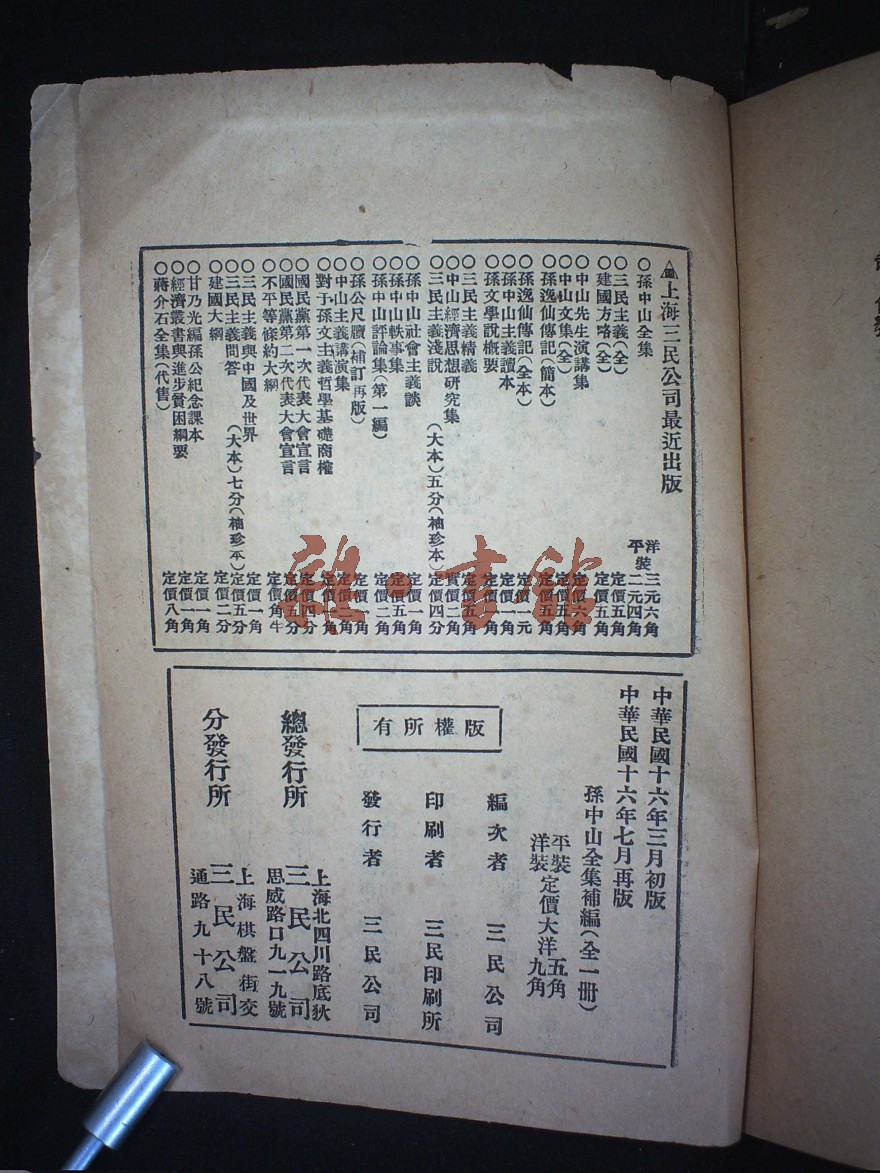 上海三民公司最近出版
〇孫中山全集 洋裝三元六角 平裝二元四角
〇三民主義(全) 定價五角
〇建國方略(全) 定價五角
〇中山先生演講集 定價六角
〇中山文集(全)
〇孫逸仙傳記(簡本) 定價五角
〇孫逸仙傳記(全本) 定價一元
〇孫中山主義讀本 定價一角
〇孫文學說概要
〇三民主義精義 定價五角
〇中山經濟思想研究集 實價二角
〇三民主義淺說 (大本)五分(袖珍本)定價四分
〇孫中山社會主義談 定價一角
〇孫中山軼事集 定價五角
〇孫中山評論集(第一編) 定價二角
〇孫公尺牘(補訂再版) 定價一角
〇中山主義講演集 定價二角
〇對于孫文主義哲學基礎商榷 定價一角
〇國民黨第一次代表大會宣言 定價四分
〇國民黨第二次代表大會宣言 定價五分
〇不平等條約大綱 定價角半
〇三民主義與中國及世界 定價一角
〇三民主義問答 (大本)七分(袖珍本)定價五分
〇建國大綱 定價二分
〇甘乃光編孫公紀念課本 定價一角
〇經濟叢書與進步貧困綱要 定價一角
〇蔣介石全集(代售) 定價八角
中華民國十六年三月初版
中華民國十六年七月再版
孫中山全集補編(全一冊)
平裝 洋裝 定價大洋 五角 九角
版權所有
編次者 三民公司
印刷者 三民印刷所
發行者 三民公司
總發行所 上海北四川路底狄
三民公司
思威路口九一九號
分發行所 上海棋盤街交
三民公司
通路九十八號
雜·書館